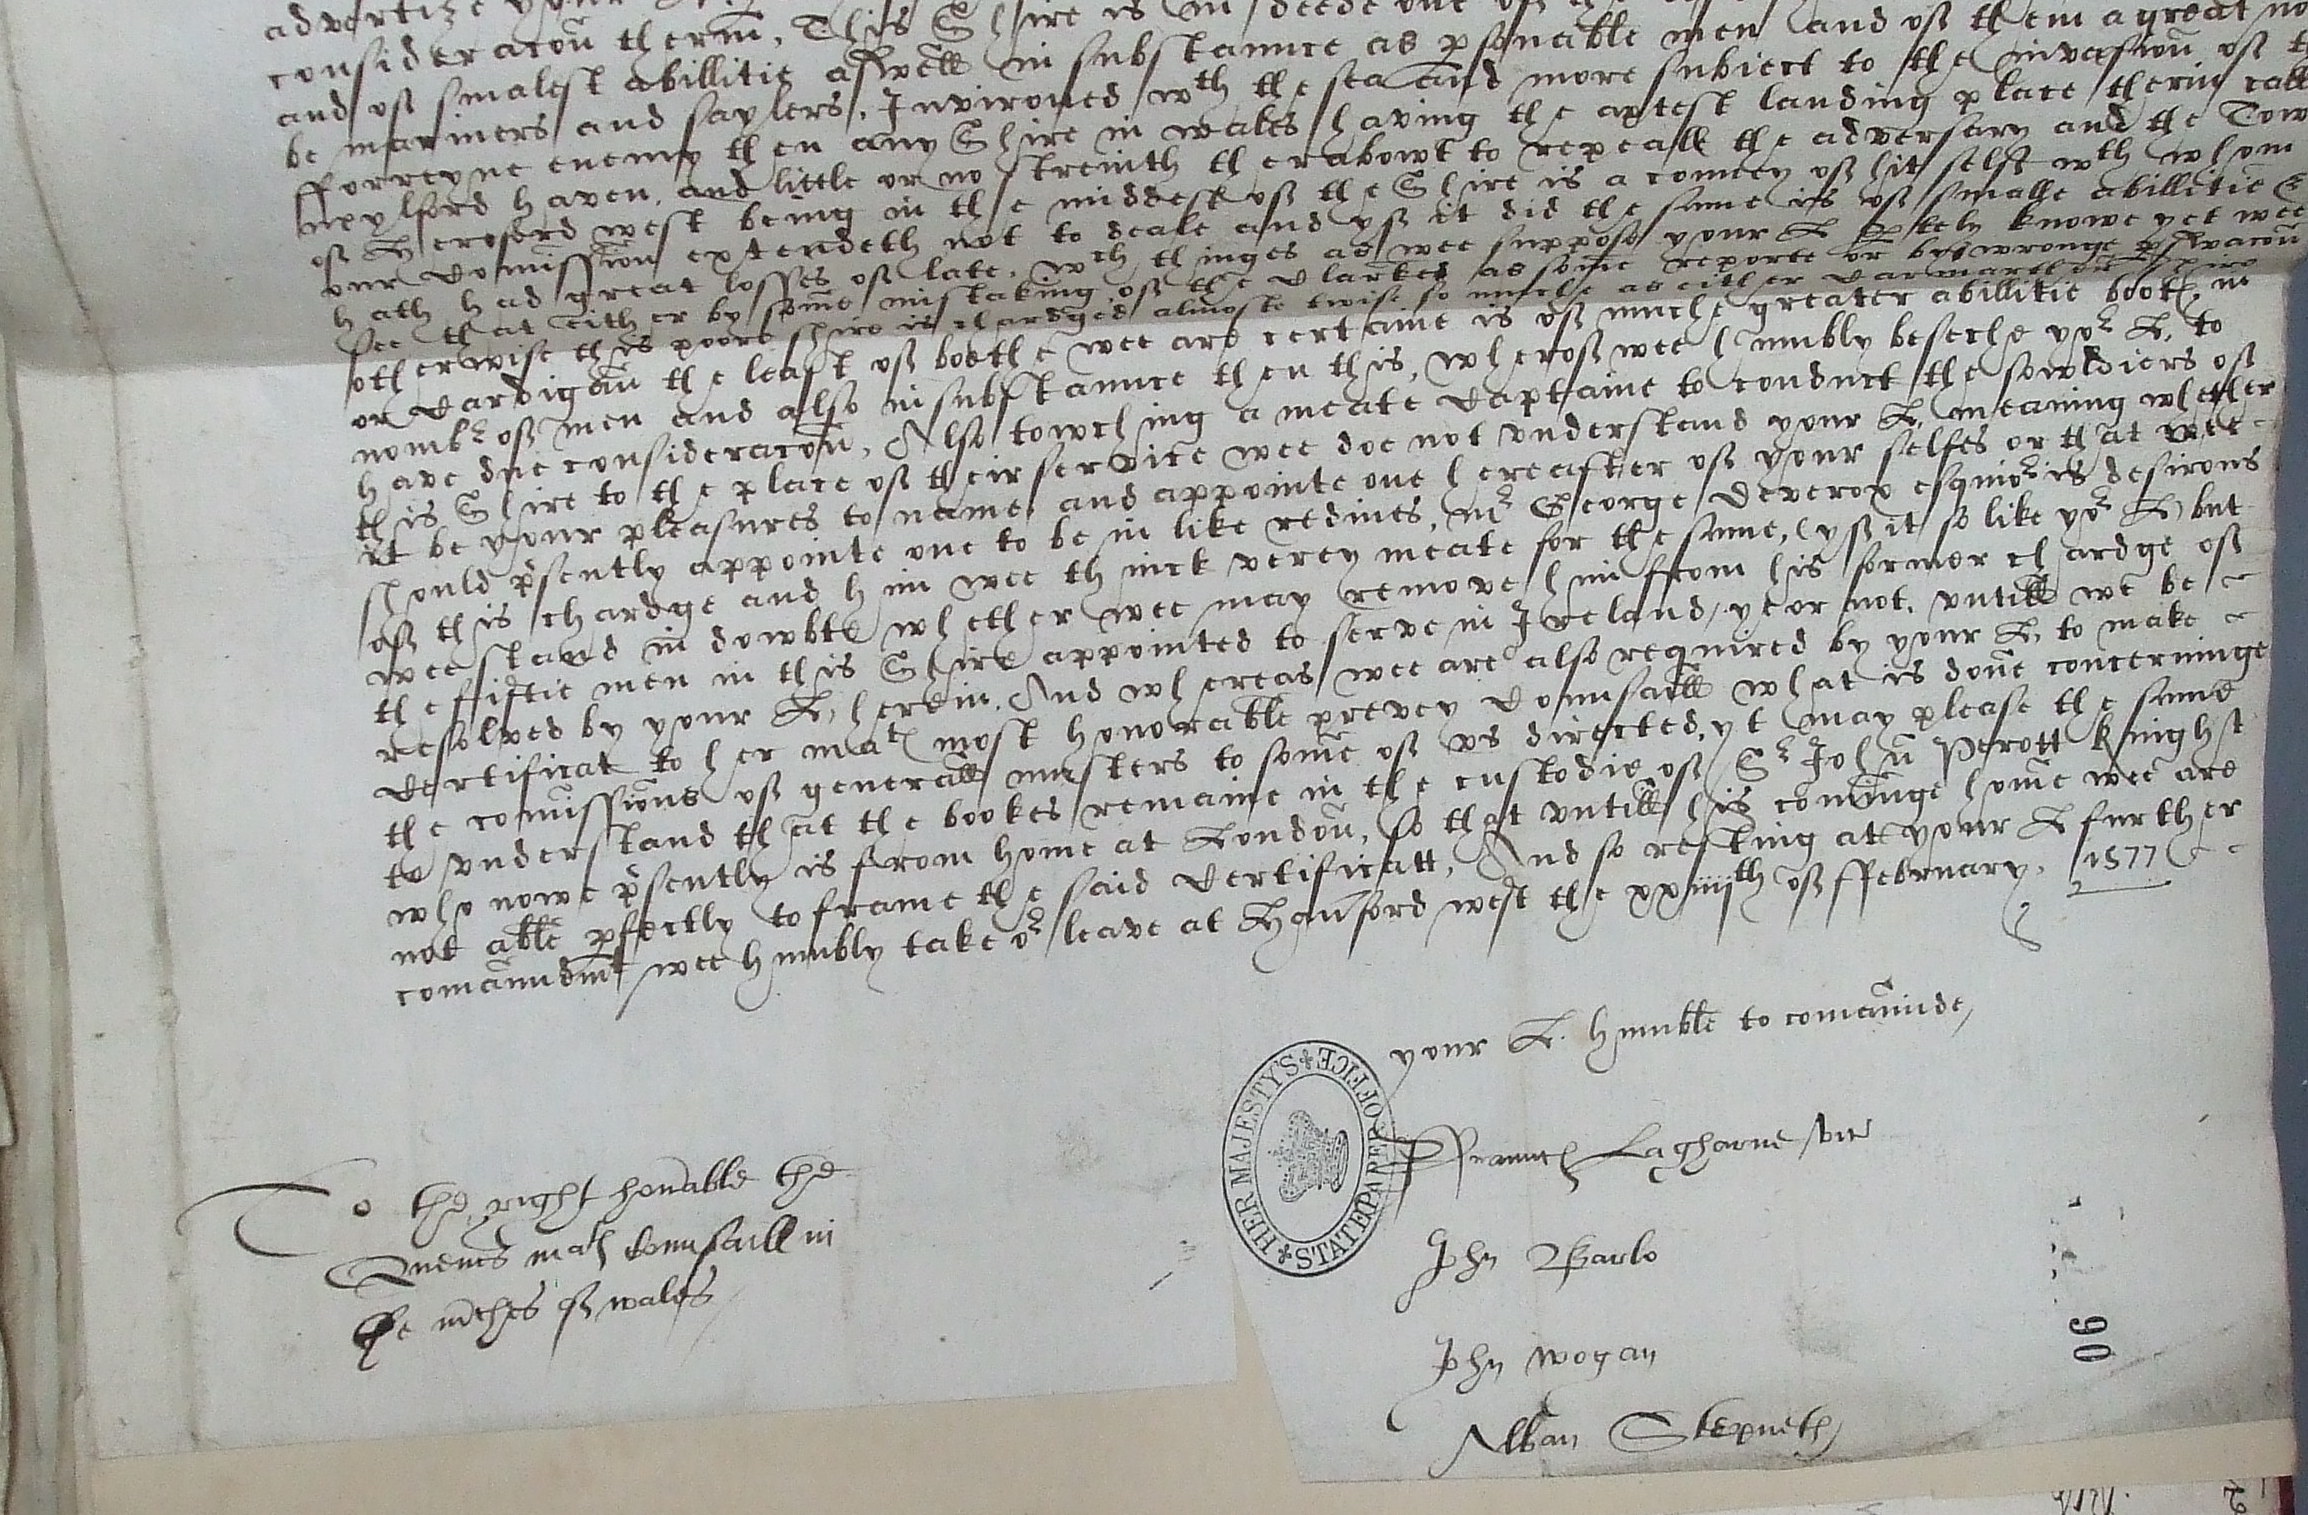 advertize your
consideracoñ therin̄, This Shire is in deede one of the
and of smalest abillitie aswell in substaunce as psonable men and of them a great no
be mariners and saylers, Invironed wth the sea and more subiect to the invasioñ of th
fforreyne enemy then any Shire in wales having the aptest landing place therin call
mylford haven, and little or no streinth therabowt to repeall the adversary and the Tow
of Hereford west being in the middest of the Shire is a countey of hit self wth whom
our Comissioñ extendeth not to deale and yf it did the same is of smalle abillitie &
hath had great losses of late, wch thinges as wee suppose your L ptely knowe yet wee
see that either by some mistaking of the Clarkes as some reporte or by wronge pswacoñ
otherwise this poore shire is chardged almoste twise so muche as either Carmarthen shire
or Cardigan̄ the least of boethe wee are certaine is of muche greater abillitie both in
nombr of men and also in substaunce then this, wherof wee humbly beseche yor L. to
have due consideracoñ, Also towching a meate Captaine to conduct the sowldiers of
this Shire to the place of their service wee doe not vnderstand your L. meaning whether
it be your pleasures to name and appointe one hereafter of your selfes or that wee
should p̄sently appointe one to be in like redines, mr George Deverox esquior is desirous
of this chardge and him wee thinck verey meate for the same, (yf it so like yor L) but
wee stand in dowbte whether wee may remove him from his former chardge of
the fiftie men in this Shire appointed to serve in Ireland, ye or not, vntill we be
resolved by your L, herein. And whereas wee are also required by your L, to make
Certificat to her mats most honorable prevey Counsaill what is done concerninge
the comissions of generall musters to some of vs directed, yt may please the same
to vnderstand that the bookes remaine in the custodie of Sr Johñ Perott knight
who nowe p̄sently is from home at Londoñ, so that vntill his cominge home wee are
not able pfectly to frame the said Certificatt, And so resting at your L further
comaundmt wee humbly take or leave at Hauford west the xxiiijth of ffebruary, 1577
your L. humble to comaunde,
ffraunces Lagharne vic
John Barlo
John wogan
Alban Stepneth
To the right honable the
Quenes mats counsaill in
the mches of wales
HER MAJESTY'S STATE PAPER OFFICE
90